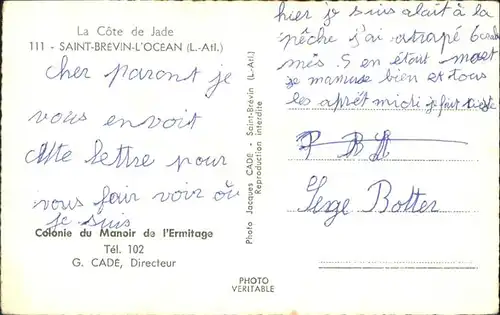 La Côte de Jade
111 - SAINT-BRÉVIN-L'OCEAN (L.-Atl.)
cher paront je
vous envoit
cette lettre pour
vous fair voir où
je suis
Colonie du Manoir de l'Ermitage
Tél. 102
G. CADE, Directeur
Photo Jacques CADE - Saint-Brévin (L.-Atl.)
Reproduction interdite
PHOTO
VERITABLE
hier je suis alait à la
pêche j'ai atrapé 6
mès. 5 en étant mort
je mamuse bien et tous
les aprét midi je fait
Serge Botter